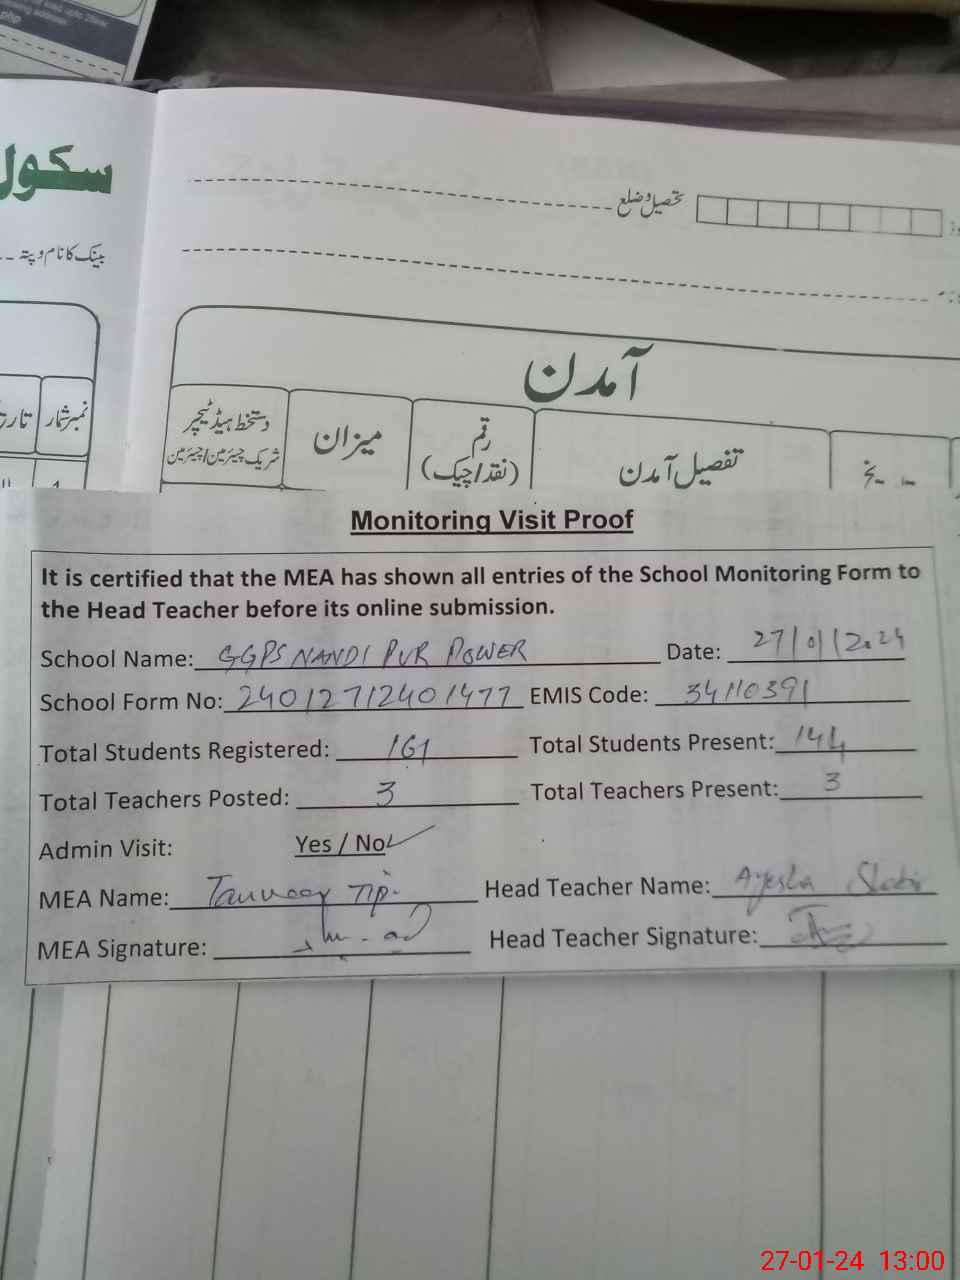 سکول
تحصیل و ضلع
بینک کا نام و پتہ
آمدن
نمبر شمار
دستخط ہیڈ ٹیچر
شریک چیئرمین/چیئرمین
میزان
رقم
(نقد/چیک)
تفصیل آمدن
Monitoring Visit Proof
It is certified that the MEA has shown all entries of the School Monitoring Form to
the Head Teacher before its online submission.
School Name: GGPS NANDI PUR POWER Date: 27/01/2024
School Form No: 24012712401477 EMIS Code: 34110391
Total Students Registered: 161 Total Students Present: 144
Total Teachers Posted: 3 Total Teachers Present: 3
Admin Visit: Yes / No
MEA Name: Head Teacher Name: Ayesha
MEA Signature: Head Teacher Signature:
27-01-24 13:00